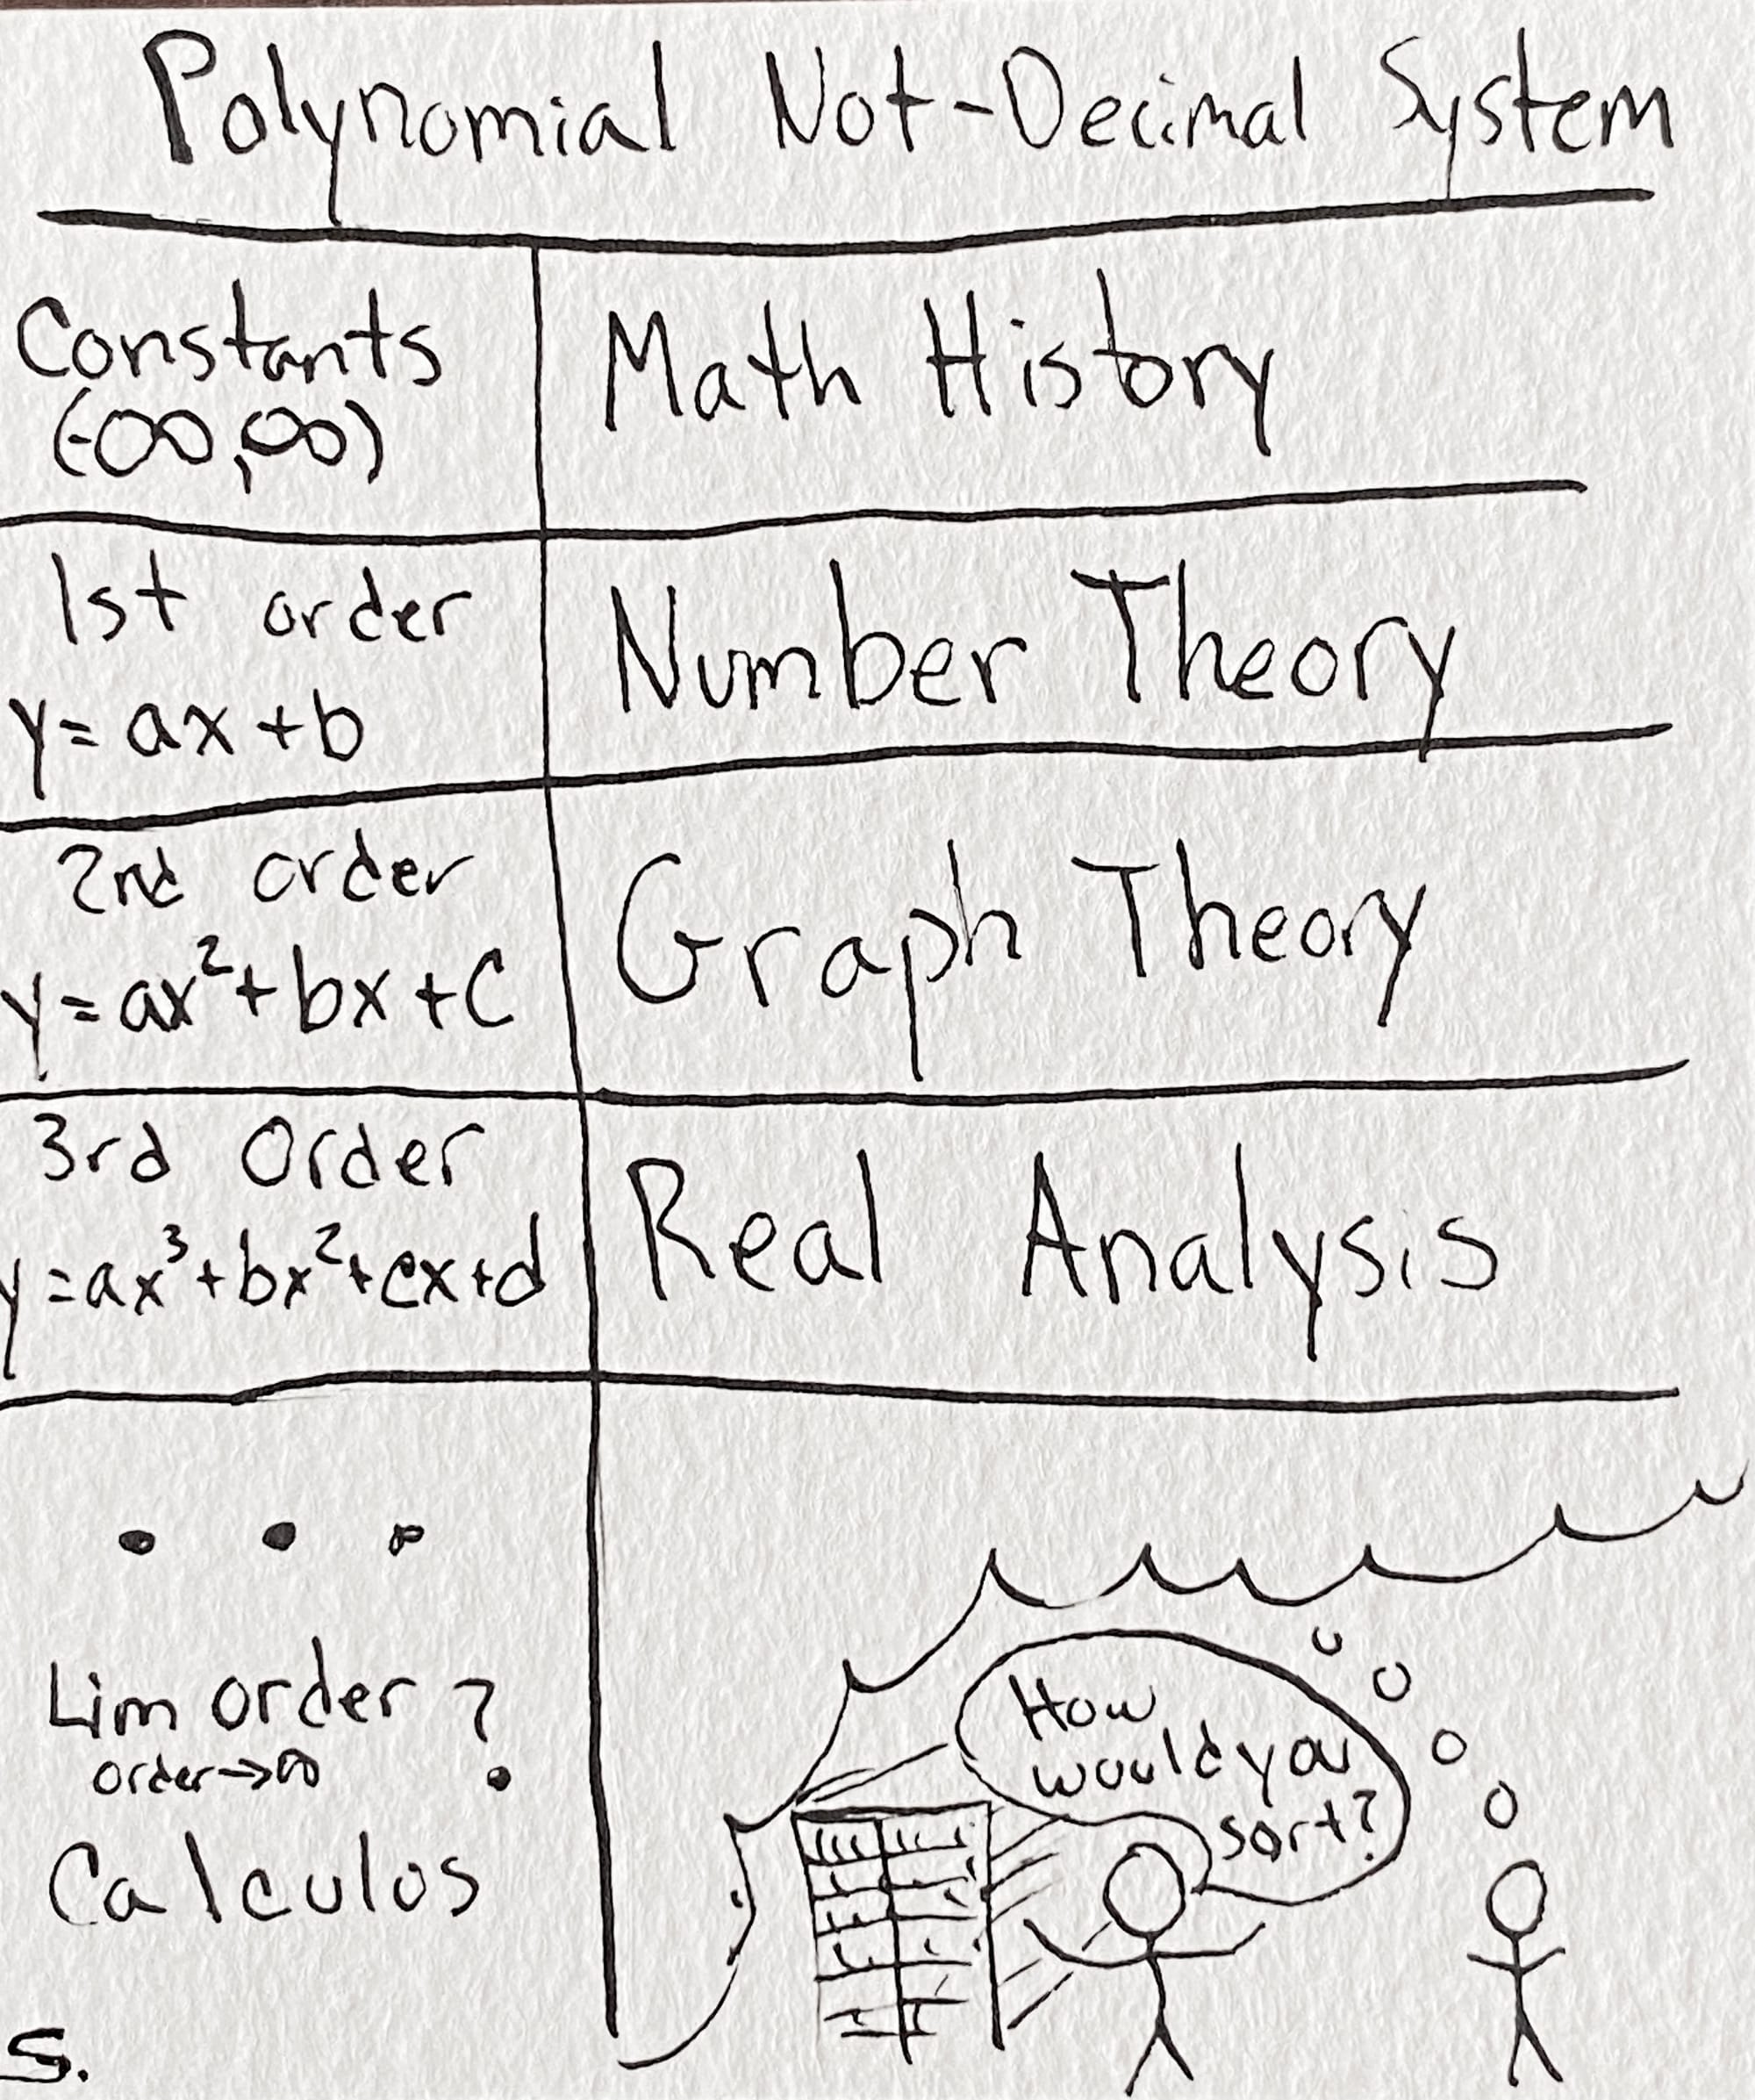 Polynomial Not-Decimal System
Constants
(-∞,∞)
Math History
1st order
y=ax+b
Number Theory
2nd order
y=ax²+bx+c
Graph Theory
3rd Order
y=ax³+bx²+cx+d
Real Analysis
. . .
Lim order ?
order→∞
Calculus
How
would you
sort?
S.